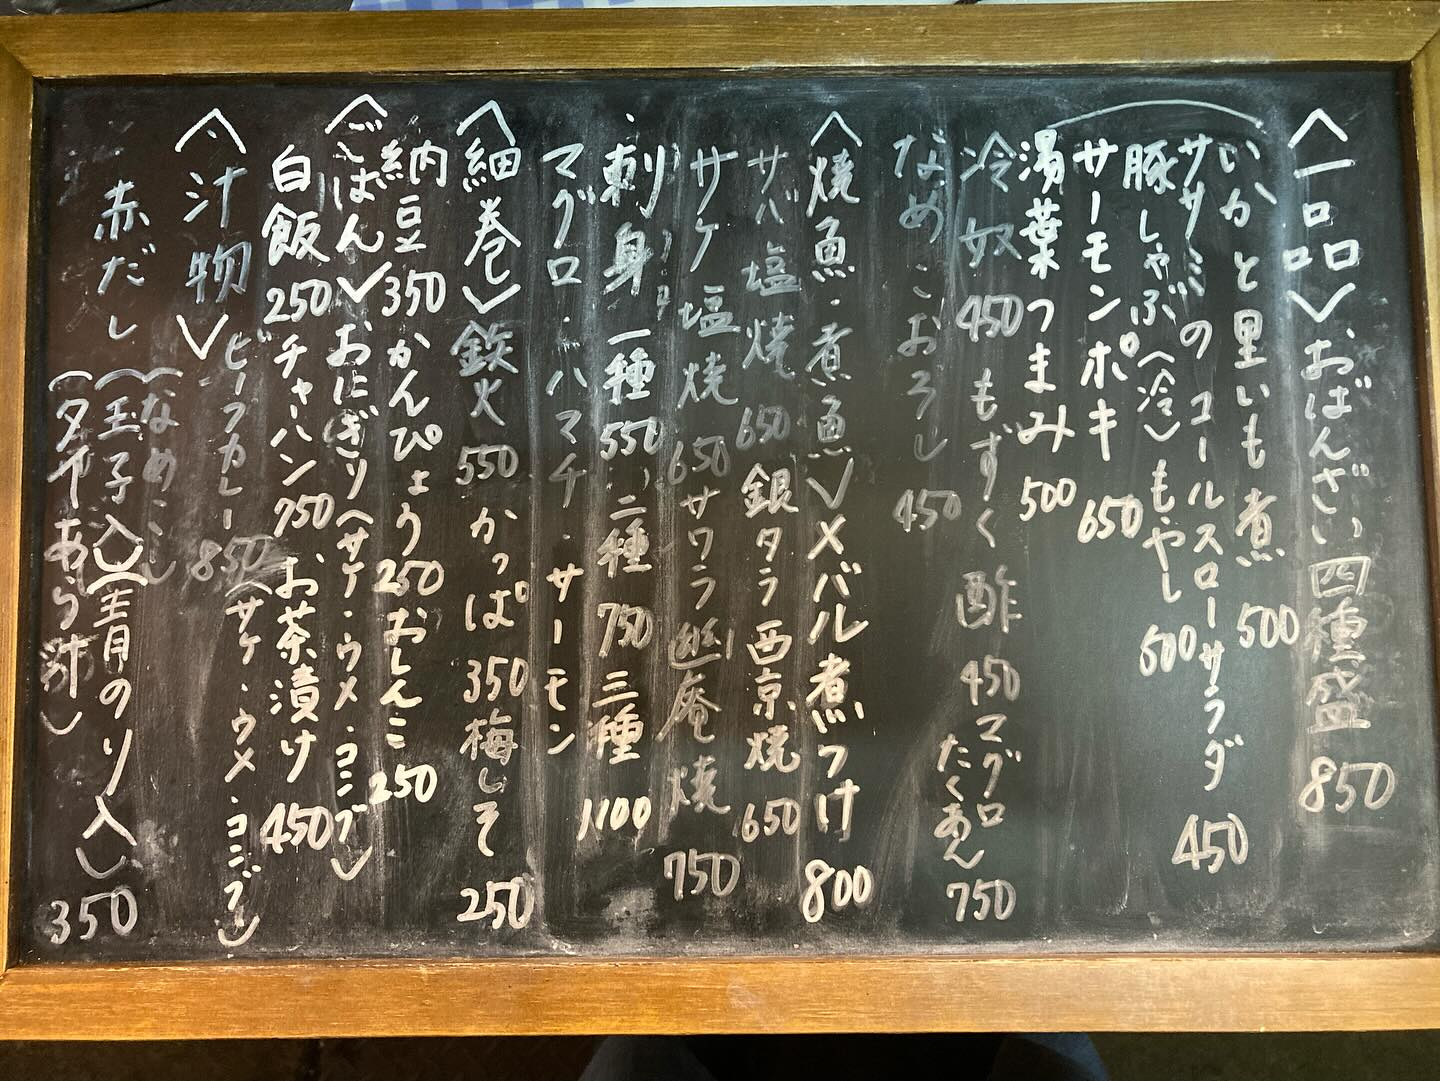 〈一品〉、おばんざい四種盛 850
いかと里いも煮 500
ササミのコールスローサラダ 450
豚しゃぶ(冷)もやし 500
サーモンポキ 650
湯葉つまみ 500
冷奴 450 もずく酢 450 マグロたくあん 750
なめこおろし 450
〈焼魚・煮魚〉メバル煮つけ 800
サバ塩焼 650 銀タラ西京焼 650
サケ塩焼 650 サワラ幽庵焼 750
・刺身 一種 550、二種 750 三種 1100
マグロ・ハマチ・サーモン
〈細巻〉鉄火 550 かっぱ 350 梅しそ 250
納豆 350 かんぴょう 250 おしんこ 250
〈ごはん〉おにぎり(サケ・ウメ・コンブ)
白飯 250 チャーハン 750、お茶漬け 450
(サケ・ウメ・コンブ)
〈汁物〉ビーフカレー 850
・赤だし(なめこ汁)
(玉子入)(青のり入)
(タイあら汁) 350